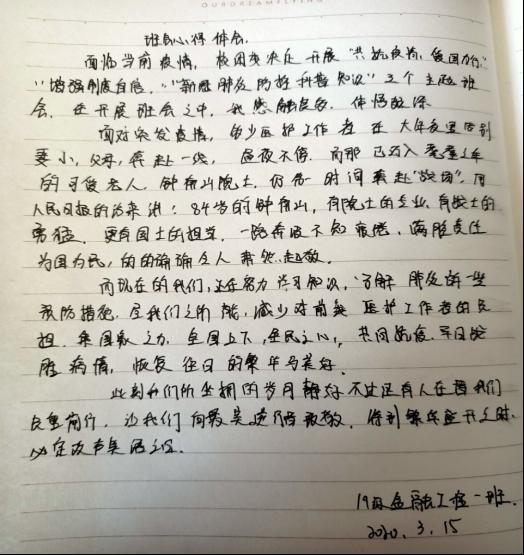 OURDREAMFLYING
班会心得体会.
面临当前疫情，校团委决定开展“共抗疫情，爱国力行”
“增强制度自信”，“新冠肺炎防控科普知识”三个主题班
会. 在开展班会之中，我感触良多，体悟颇深
面对突发疫情，多少医护工作者在大年夜里告别
妻小，父母，奔赴一线，昼夜不停. 而那已而入耄耋之年
的可敬老人，钟南山院士，仍第一时间奔赴“战场”. 用
人民日报的话来讲：84岁的钟南山，有院士的专业，有战士的
勇猛，更有国士的担当. 一路奔波不知疲倦，满腔责任
为国为民，的的确确令人肃然起敬.
而现在的我们，还在努力学习知识，了解肺炎的一些
预防措施，尽我们之所能，减少对前线医护工作者的负
担. 集国家之力，全国上下，全民之心，共同抗疫. 早日战
胜病情，恢复往日的繁华与美好.
此刻我们所坐拥的岁月静好不过还有人在替我们
负重前行，让我们向最美逆行者致敬，待到繁华盛开之时，
19级金融工程一班.
2020. 3. 15